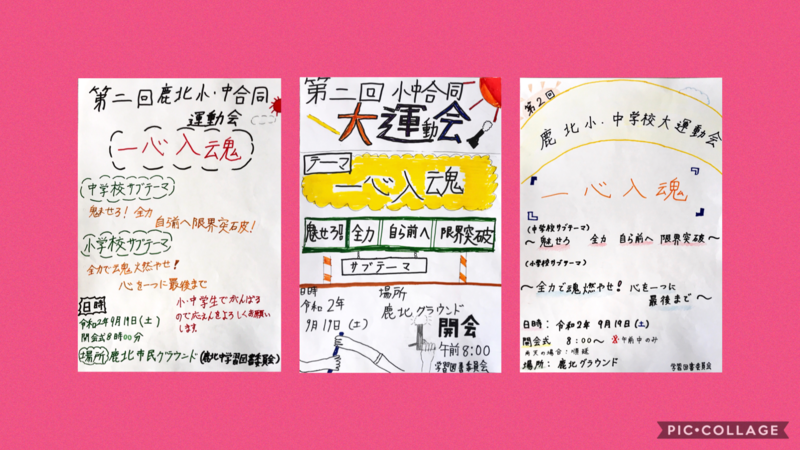 第二回鹿北小・中合同
運動会
一心入魂
中学校サブテーマ
魅せろ！全力
自ら前へ限界突破！
小学校サブテーマ
全力で魂燃やせ！
心を一つに最後まで
小・中学生でがんばる
のでおうえんをよろしくお願い
します。
日時
令和2年9月19日(土)
開会式8時00分
場所 鹿北市民グラウンド(鹿北中学習図書委員会)
第二回 小中合同
大運動会
テーマ
一心入魂
魅せろ 全力 自ら前へ 限界突破
サブテーマ
日時
令和2年
9月19日(土)
場所
鹿北グラウンド
開会
午前8:00
学習図書委員会
第2回
鹿北小・中学校大運動会
一心入魂
(中学校サブテーマ)
～魅せろ 全力 自ら前へ 限界突破～
(小学校サブテーマ)
～全力で魂燃やせ！心を一つに
最後まで～
日時：令和2年 9月19日(土)
開会式 8:00～ ※午前中のみ
雨天の場合：順延
場所：鹿北グラウンド
学習図書委員会
PIC•COLLAGE